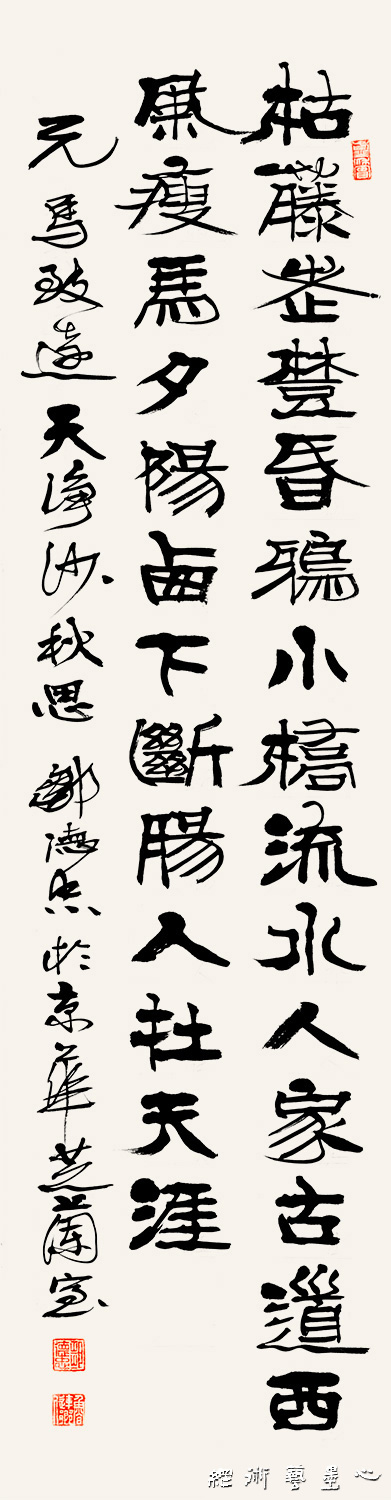 枯藤老樹昏鴉小橋流水人家古道西
風瘦馬夕陽西下斷腸人在天涯
元馬致遠天淨沙秋思鄒德忠於京華芝蘭室